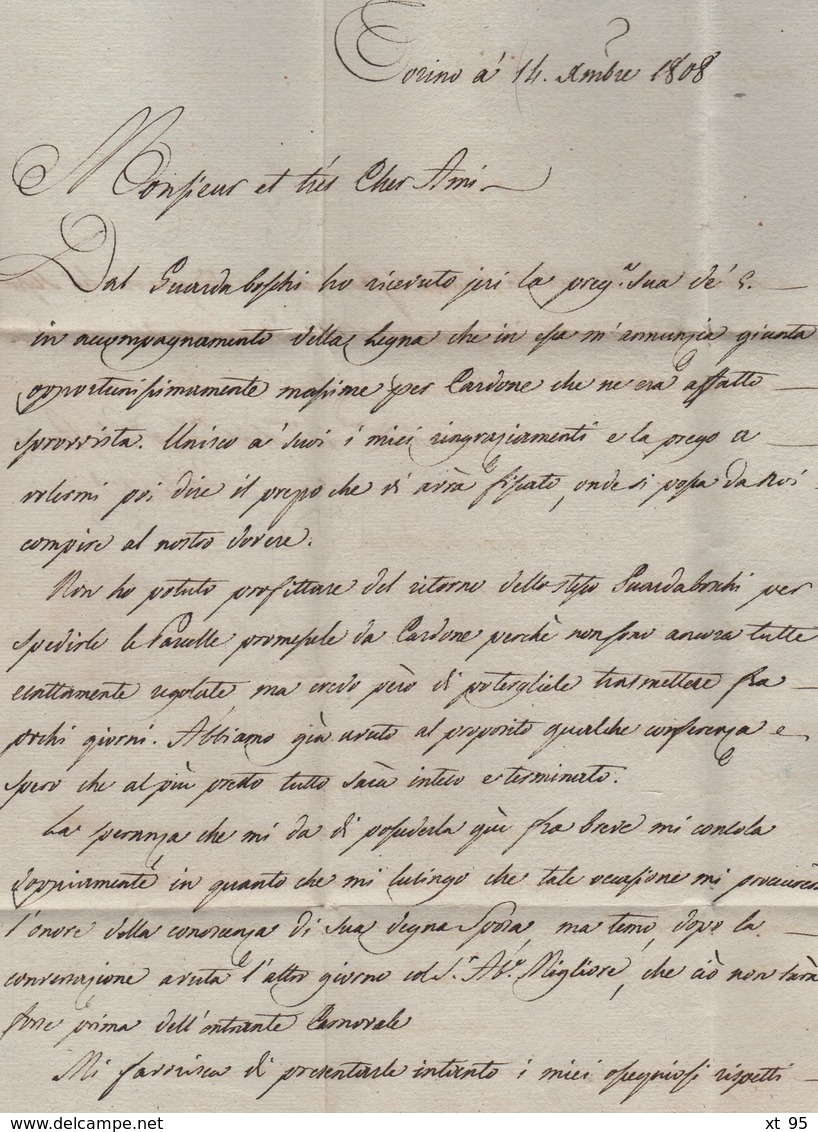 Torino a' 14. Xmbre 1808
Monsieur et trés Cher Ami
Dal Guardaboschi ho ricevuto jeri la preg.ª sua de' 8.
in accompagnamento della Legna che in essa m'annunzia giunta
opportunissimamente massime per Cardone che ne era affatto
sprovvista. Unisco a' suoi i miei ringraziamenti e la prego a
volermi poi dire il prezzo che vi avrà fissato, onde si possa da Noi
compire al nostro dovere.
Non ho potuto profittare del ritorno dello stesso Guardaboschi per
spedirle le Parcelle promessele da Cardone perchè non sono ancora tutte
esattamente regolate ma credo però di potergliele trasmettere fra
pochi giorni. Abbiamo già avuto al proposito qualche conferenza e
spero che al più presto tutto sarà inteso e terminato.
La speranza che mi da di possederla quì fra breve mi consola
doppiamente in quanto che mi lusingo che tale occasione mi procurerà
l'onore della conoscenza di sua degna Sposa ma temo, dopo la
conversazione avuta l'altro giorno col S.r Ab.e Migliore, che ciò non sarà
forse prima dell'entrante Carnovale
Mi favorisca di presentarle intanto i miei ossequiosi rispetti
xt 95